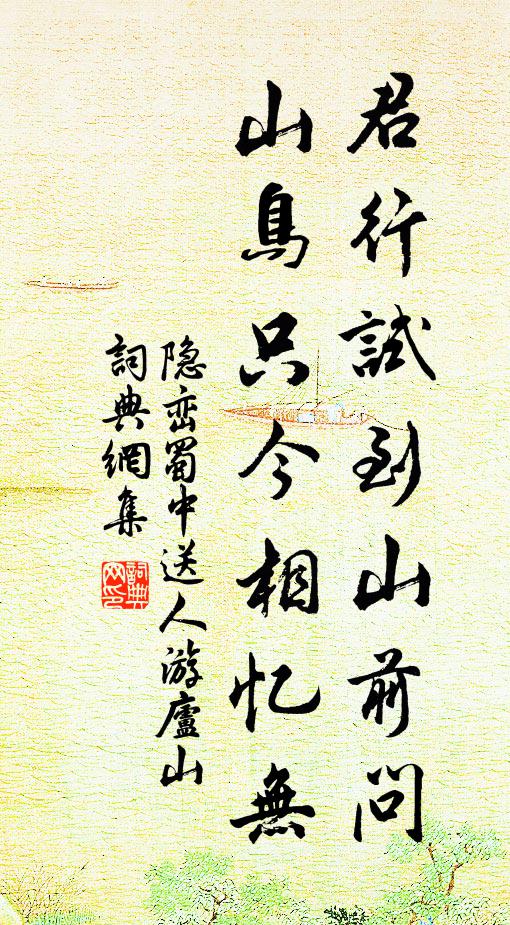 君行試到山前問
山鳥只今相忆無
隐峦蜀中送人游廬山
詞典網集
詞典
网印